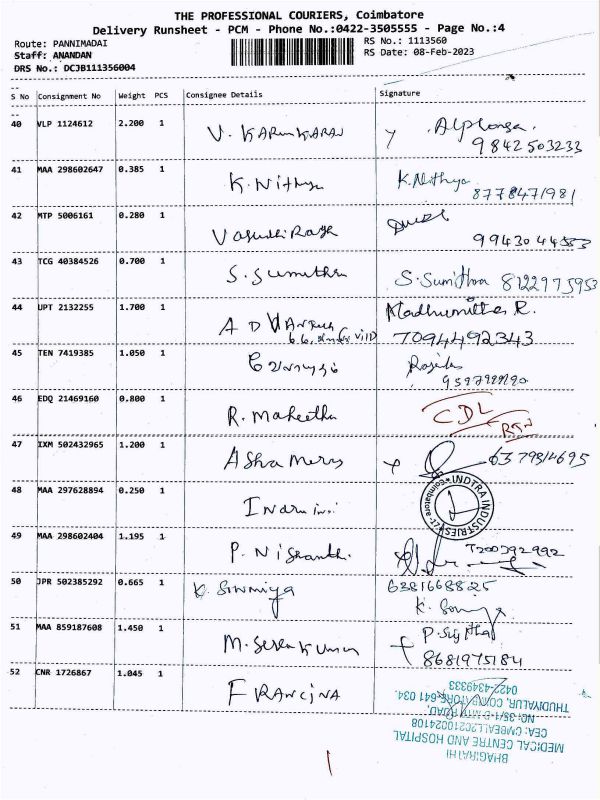 THE PROFESSIONAL COURIERS, Coimbatore
Delivery Runsheet - PCM - Phone No.:0422-3505555 - Page No.:4
Route: PANNIMADAI
RS No.: 1113560
Staff: ANANDAN
RS Date: 08-Feb-2023
DRS No.: DCJB111356004
S No Consignment No Weight PCS Consignee Details Signature
40 VLP 1124612 2.200 1 V. KARUNKARAN Alphonsa.
9842503233
41 MAA 298602647 0.385 1 K. Nithya K. Nithya
8778471981
42 MTP 5006161 0.280 1
9943044553
43 TCG 40384526 0.700 1 S. Sumithra S. Sumithra 8122975953
44 UPT 2132255 1.700 1 Madhumitha R.
7094492343
45 TEN 7419385 1.050 1
46 EDQ 21469160 0.800 1 R. Maheetha CDL
RTN
47 IXM 502432965 1.200 1 Asha Mercy 6379514695
48 MAA 297628894 0.250 1 INDTRA INDUSTRIES
Coimbatore-17
49 MAA 298602404 1.195 1 P. Nishanth. 7200392992
50 JPR 502385292 0.665 1 K. Sowmiya 6381668825
K. Sowmya
51 MAA 859187608 1.450 1 M. Senthkumar
8681975184
52 CNR 1726867 1.045 1 FRANCINA
BHAGIRATHI
MEDICAL CENTRE AND HOSPITAL
CEA: CMBEALL2C2100024108
NO: 35/1-D MTP ROAD,
THUDIYALUR, COIMBATORE-641 034.
0422-4349333